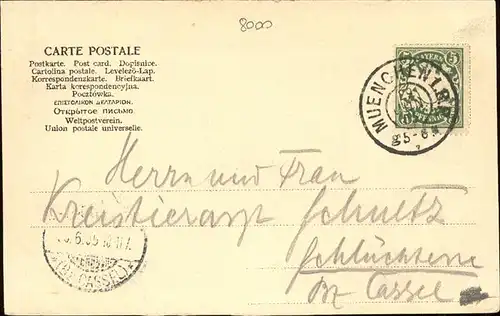 8000
CARTE POSTALE
Postkarte. Post card. Dopisnice.
Cartolina postale. Levelező-Lap.
Korrespondenzkarte. Briefkaart.
Karta korespondencyjna.
Pocztówka.
ΕΠΙΣΤΟΛΙΚΟΝ ΔΕΛΤΑΡΙΟΝ.
Открытое письмо
Weltpostverein.
Union postale universelle.
BAYERN
5
MUENCHEN
Herrn und Frau
Kreistierarzt Schultz
Schlüchtern
Bz Cassel
(BZ. CASSEL)